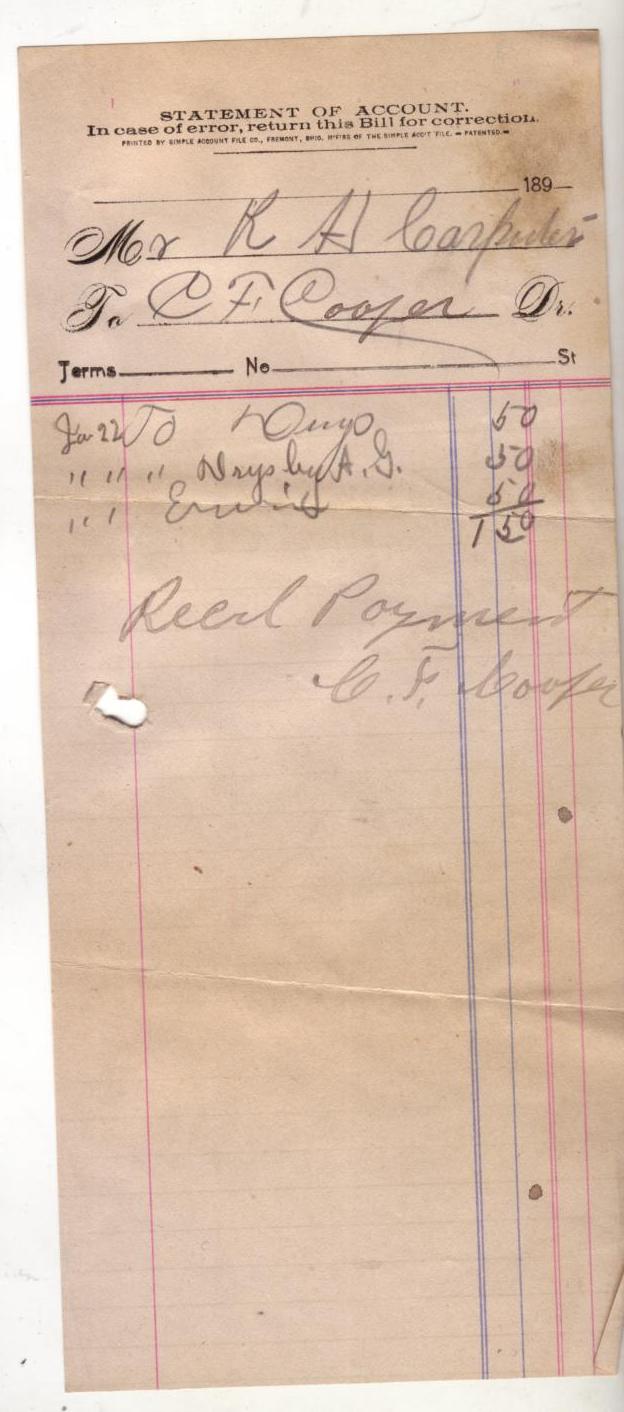 STATEMENT OF ACCOUNT.
In case of error, return this Bill for correction.
PRINTED BY SIMPLE ACCOUNT FILE CO., FREMONT, OHIO. M'F'RS OF THE SIMPLE ACC'T FILE. PATENTED.
189
Mr R H Carpenter
To C F Cooper Dr.
Terms No St
Ja 22 To 50
" " " by A. G. 50
" " 50
1 50
Recd Payment
C. F. Cooper